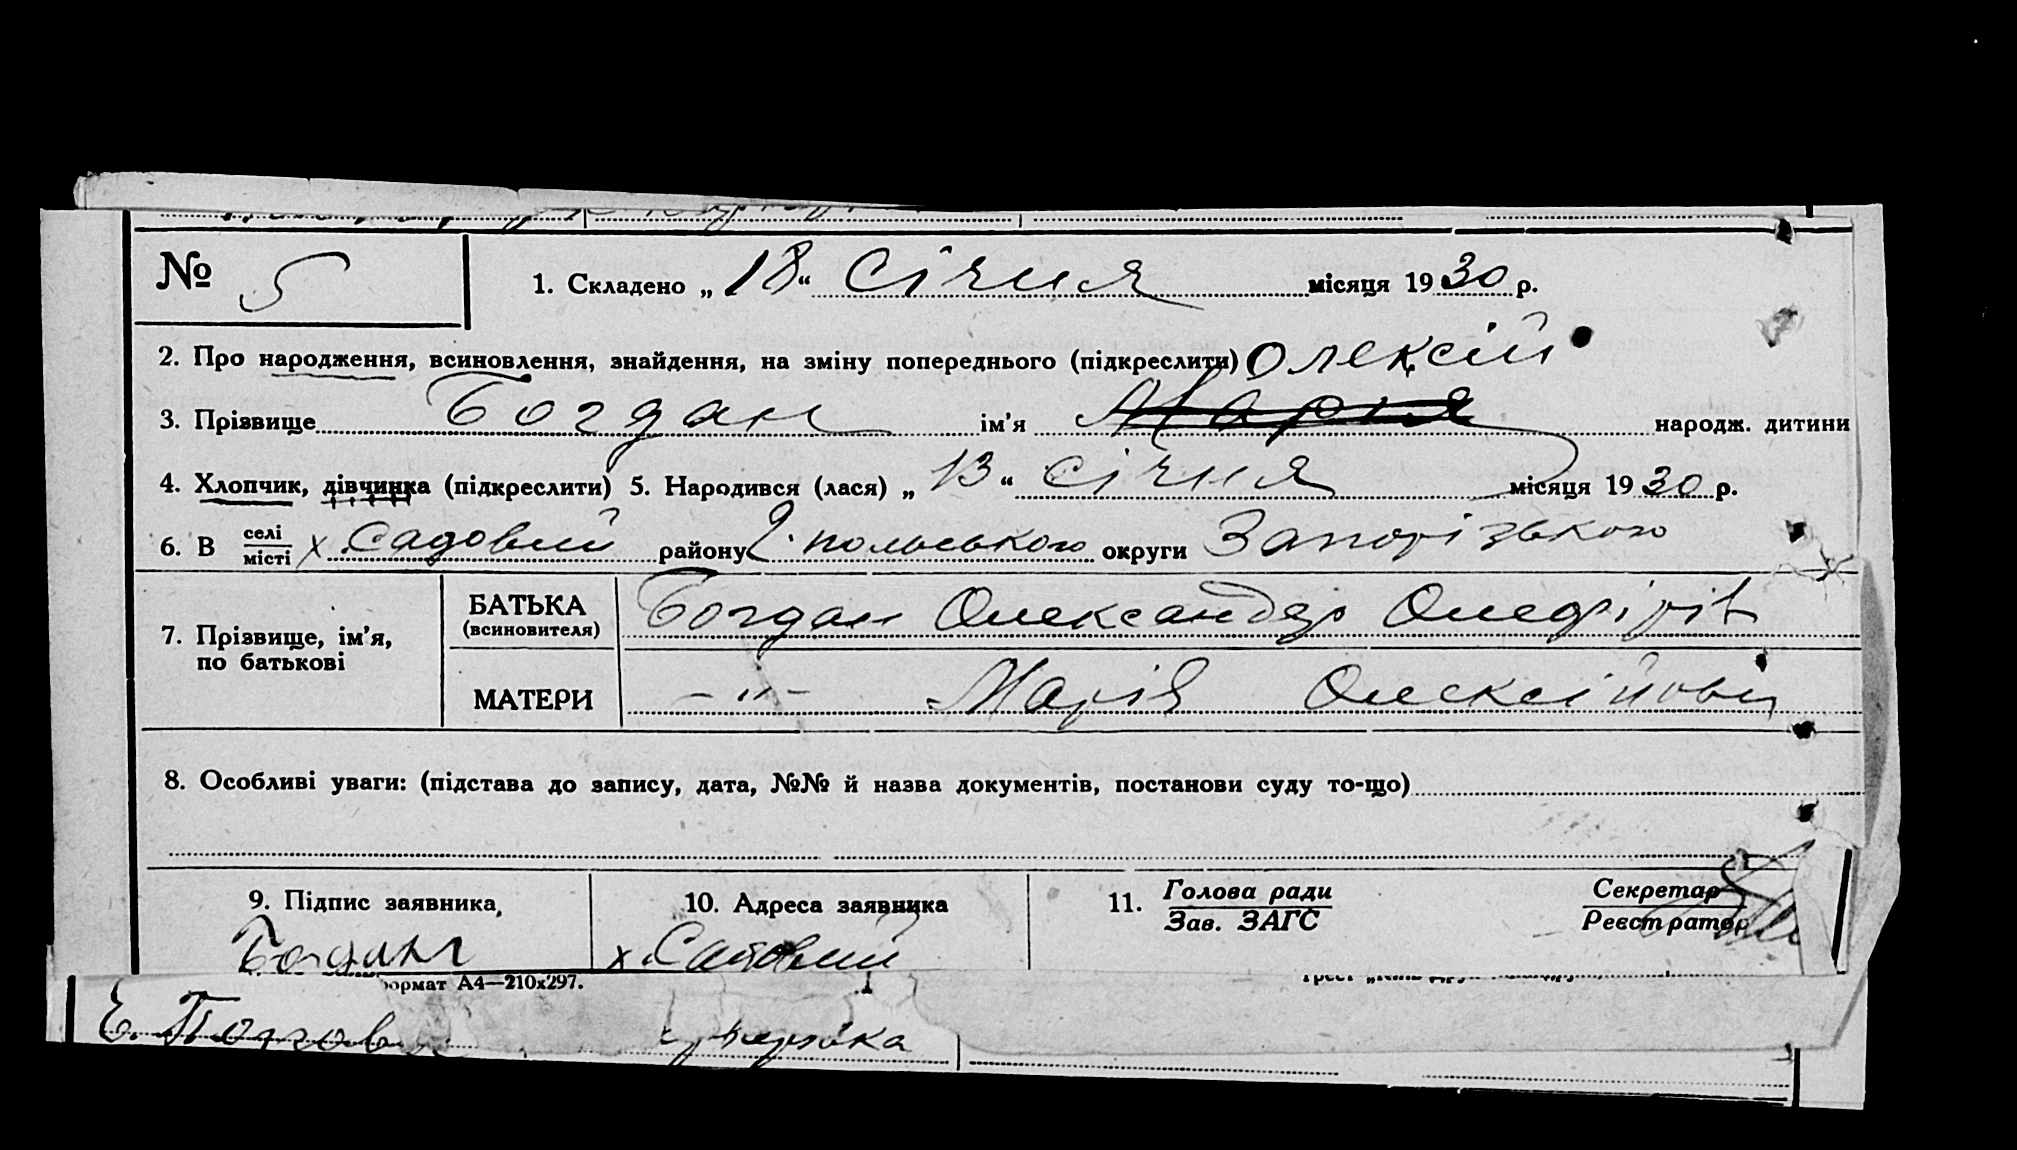 № 5
1. Складено „18“ Січня місяця 1930 р.
2. Про народження, всиновлення, знайдення, на зміну попереднього (підкреслити) Олексій
3. Прізвище Богдан ім'я Марія народж. дитини
4. Хлопчик, дівчинка (підкреслити) 5. Народився (лася) „13“ січня місяця 1930 р.
6. В селі/місті х. Садовий району польського округи Запорізького
7. Прізвище, ім'я, по батькові
БАТЬКА (всиновителя) Богдан Олександр
МАТЕРИ —"— Марія Олексійовн
8. Особливі уваги: (підстава до запису, дата, №№ й назва документів, постанови суду то-що)
9. Підпис заявника, 10. Адреса заявника 11. Голова ради/Зав. ЗАГС Секретар/Реєстратор
Богдан х. Садовий
формат А4—210х297.